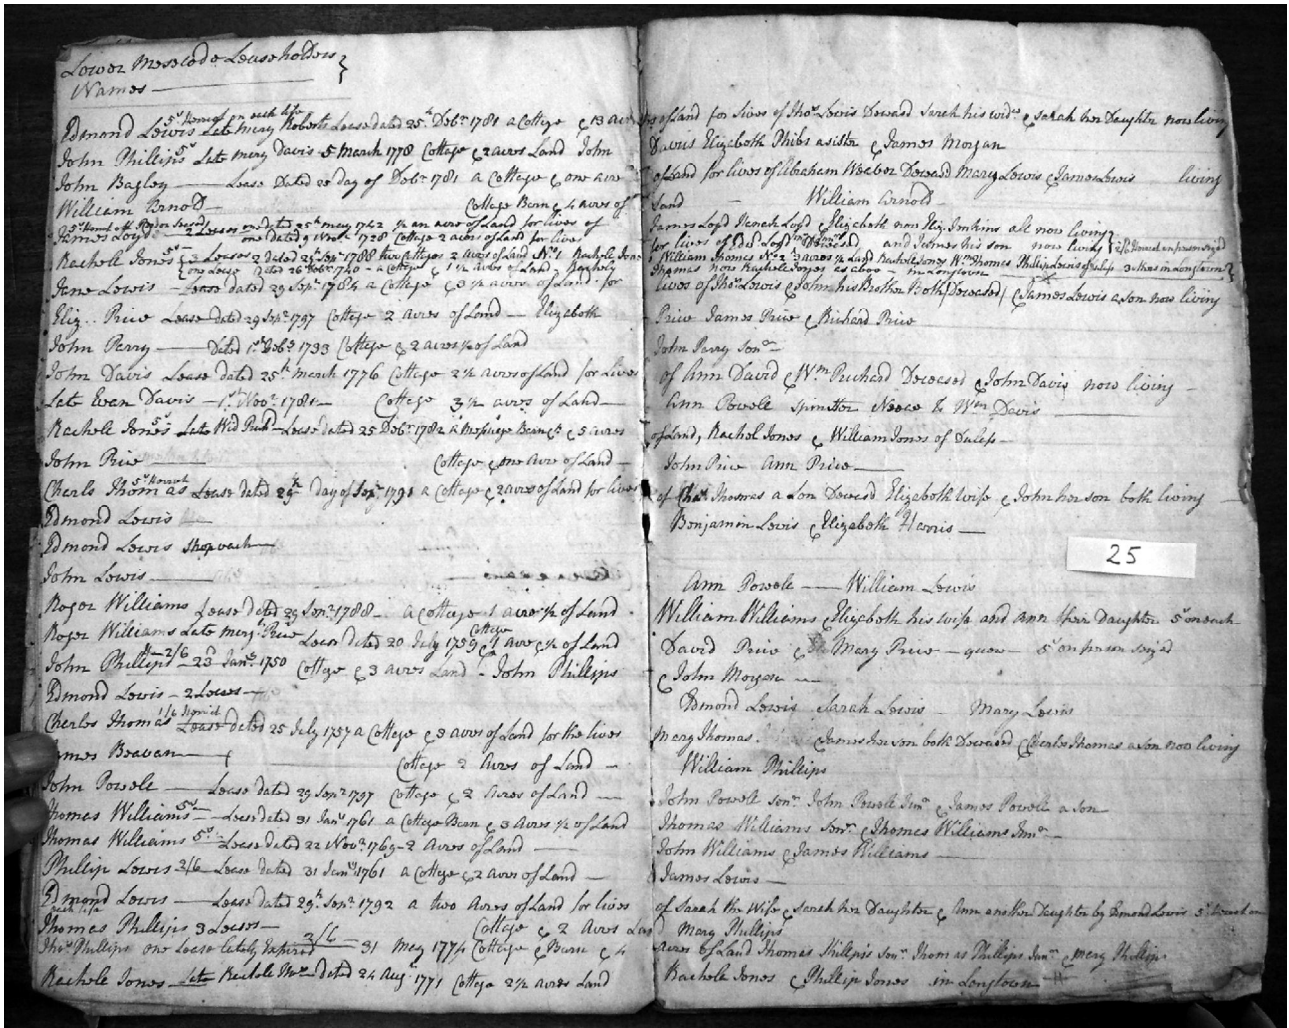 Lower Mescode Leaseholders
Names
5s Heriot on each life
Edmond Lewis Late Mary Roberts Lease dated 25th Decbr 1781 a Cottage & 13 acres
John Phillips 5s Late Mary Davis 5 March 1778 Cottage & 2 acres Land John
John Bagley Lease Dated day of Decbr 1781 a Cottage & one acre
William Arnold Cottage Barn & 4 acres of
James Loyd 2 Leases one dated 25th May 1742 ½ an acre of Land for lives of
one dated 9 1728 Cottage 2 acres of Land for lives
Rachell Jones 5s 2 Leases 2 Dated 29 Sepr 1788 two Cottages 2 acres of Land No 1 Rachele Jones
one Lease Dated 26 Decbr 1740 a Cottage & 1½ acres of Land
Jane Lewis Lease dated 29 Sepr 1784 a Cottage & 3½ acres of Land for
Eliz. Price Lease dated 29 Sepr 1797 Cottage 2 acres of Land Elizabeth
John Parry Dated 1st Decbr 1793 Cottage & 2 acres ½ of Land
John Davis Lease dated 25th March 1776 Cottage 2½ acres of Land for Lives
Late Evan Davis 1st Novr 1781 Cottage 3½ acres of Land
Rachele Jones 5s Late Wid Lease dated 25 Decbr 1782 a Messuage Barn & 5 acres
John Price Cottage & one Acre of Land
5s Heriot
Charls Thomas Lease dated 29th day of Sepr 1791 a Cottage & 2 acres of Land for lives
Edmond Lewis
Edmond Lewis
John Lewis
Roger Williams Lease dated 29 Sepr 1788 a Cottage 1 acre ½ of Land
Roger Williams Late Mary Price Lease dated 20 July 1759 Cottage & 1 acre & ½ of Land
John Phillips 2/6 23d Janry 1750 Cottage & 3 acres Land John Phillips
Edmond Lewis 2 Leases
Charles Thomas Lease dated 25 July 1757 a Cottage & 3 acres of Land for the lives
James Beavan Cottage 2 Acres of Land
John Powele Lease dated 29 Sepr 1797 Cottage & 2 Acres of Land
Thomas Williams 5s Lease dated 31 Janry 1761 a Cottage Barn & 3 Acres ½ of Land
Thomas Williams 5s Lease dated 22 Novr 1769 2 Acres of Land
Phillip Lewis 2/6 Lease dated 31 Janry 1761 a Cottage & 2 acres of Land
Edmond Lewis Lease dated 29th Sepr 1792 a two Acres of Land for lives
each life
Thomas Phillips 3 Leases Cottage & 2 Acres Land
Thos Phillips one Lease lately Expired 2/6 31 May 1774 Cottage & Barn & 4
Rachele Jones Late dated 24 Augt 1771 Cottage 2½ acres Land
of Land for lives of Thos Lewis Deceased Sarah his widw & Sarah her Daughter now living
Davis Elizabeth Phibs a sister & James Morgan
of Land for lives of Abraham Weaver Deceased Mary Lewis & James Lewis living
Land William Arnold
James Loyd Henah Loyd & Elizabeth now Eliz. Jenkins all now living
for lives of Ed Loyd Deceased and James his son now living 2/6 Heriot on person seized
William Thomas No 2 3 acres ½ Land Rachele Jones Wm Thomas Phillip Lewis of 3 Acres in Longtown
Thomas now Rachele Jones as above in Longtown
lives of Thos Lewis & John his Brother Both Deceased & James Lewis a son now living
Price James Price & Richard Price
John Parry Senr
of Ann David & Wm Prichard Deceased & John Davis now living
Ann Powele Spinster Neece to Wm Davis
of Land, Rachel Jones & William Jones of Dulas
John Price Ann Price
of Chas Thomas a Son Deceased Elizabeth wife & John her son both living
Benjamin Lewis & Elizabeth Harris
25
Ann Powele William Lewis
William Williams & Elizabeth his wife and Ann their Daughter 5s on each
David Price & Mary Price quere 5s on person seized
& John Morgan
Edmond Lewis Sarah Lewis Mary Lewis
Mary Thomas. & James her son both Deceased & Charles Thomas a son now living
William Phillips
John Powell Senr John Powele Junr & James Powell a son
Thomas Williams Senr & Thomas Williams Junr
John Williams & James Williams
James Lewis
of Sarah the Wife & Sarah her Daughter & Ann another Daughter by Edmond Lewis 5s Heriot on
Mary Phillips
acres of Land Thomas Phillips Senr Thomas Phillips Junr & Mary Phillips
Rachele Jones & Phillip Jones in Longtown